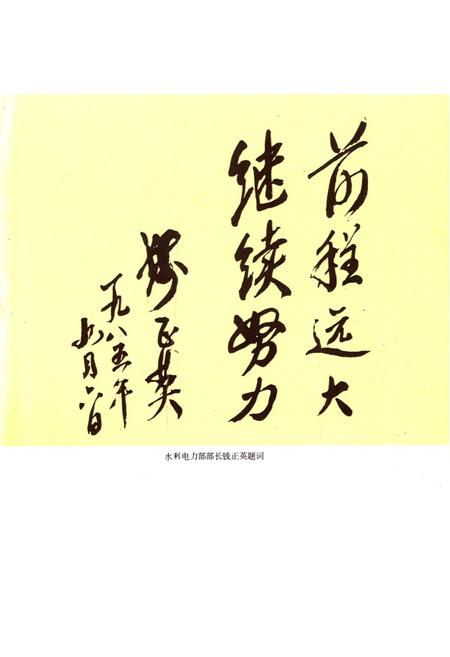 前程远大
继续努力
钱正英
一九八五年
九月六日
水利电力部部长钱正英题词